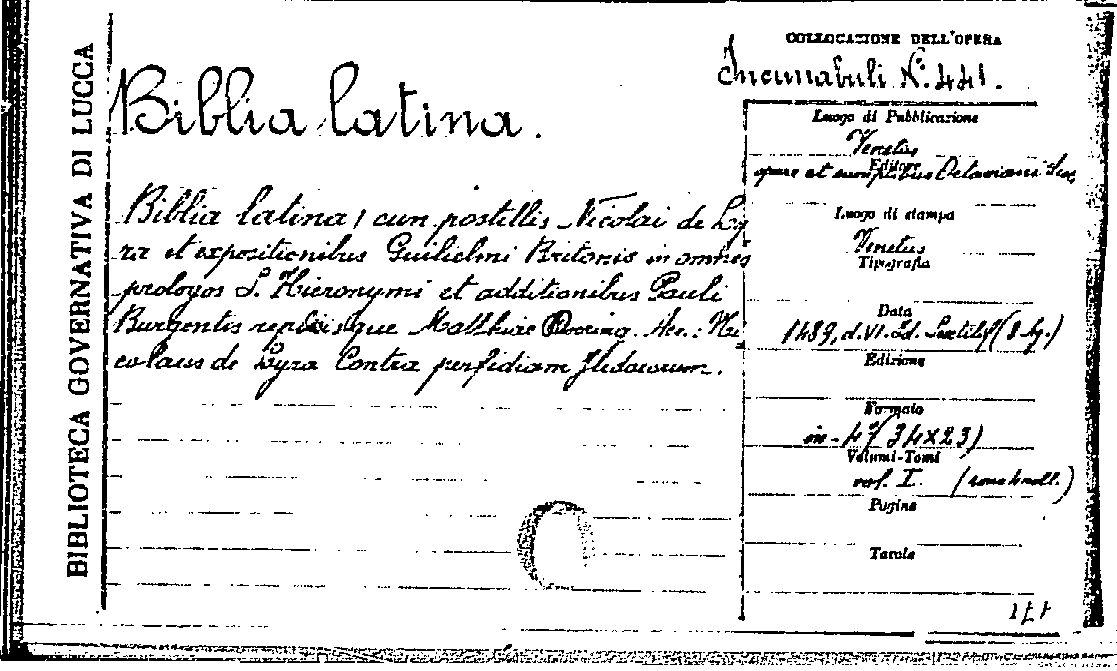 BIBLIOTECA GOVERNATIVA DI LUCCA
COLLOCAZIONE DELL'OPERA
Incunabuli N.º 441.
Biblia latina.
Biblia latina, cum postillis Nicolai de Ly
ra et expositionibus Guilielmi Britonis in omnes
prologos S. Hieronymi et additionibus Pauli
Burgentis replicisque Matthiae Doering. Acc.: Ni
colaus de Lyra Contra perfidiam Judaeorum.
Luogo di Pubblicazione
Venetus
Editore
opere et sumptibus Octaviani
Luogo di stampa
Venetus
Tipografia
Data
1489, d. VI. Id. Sextil. (8 Ag.)
Edizione
Formato
in-4º (34x23)
Volumi-Tomi
vol. I.
Pagine
Tavole